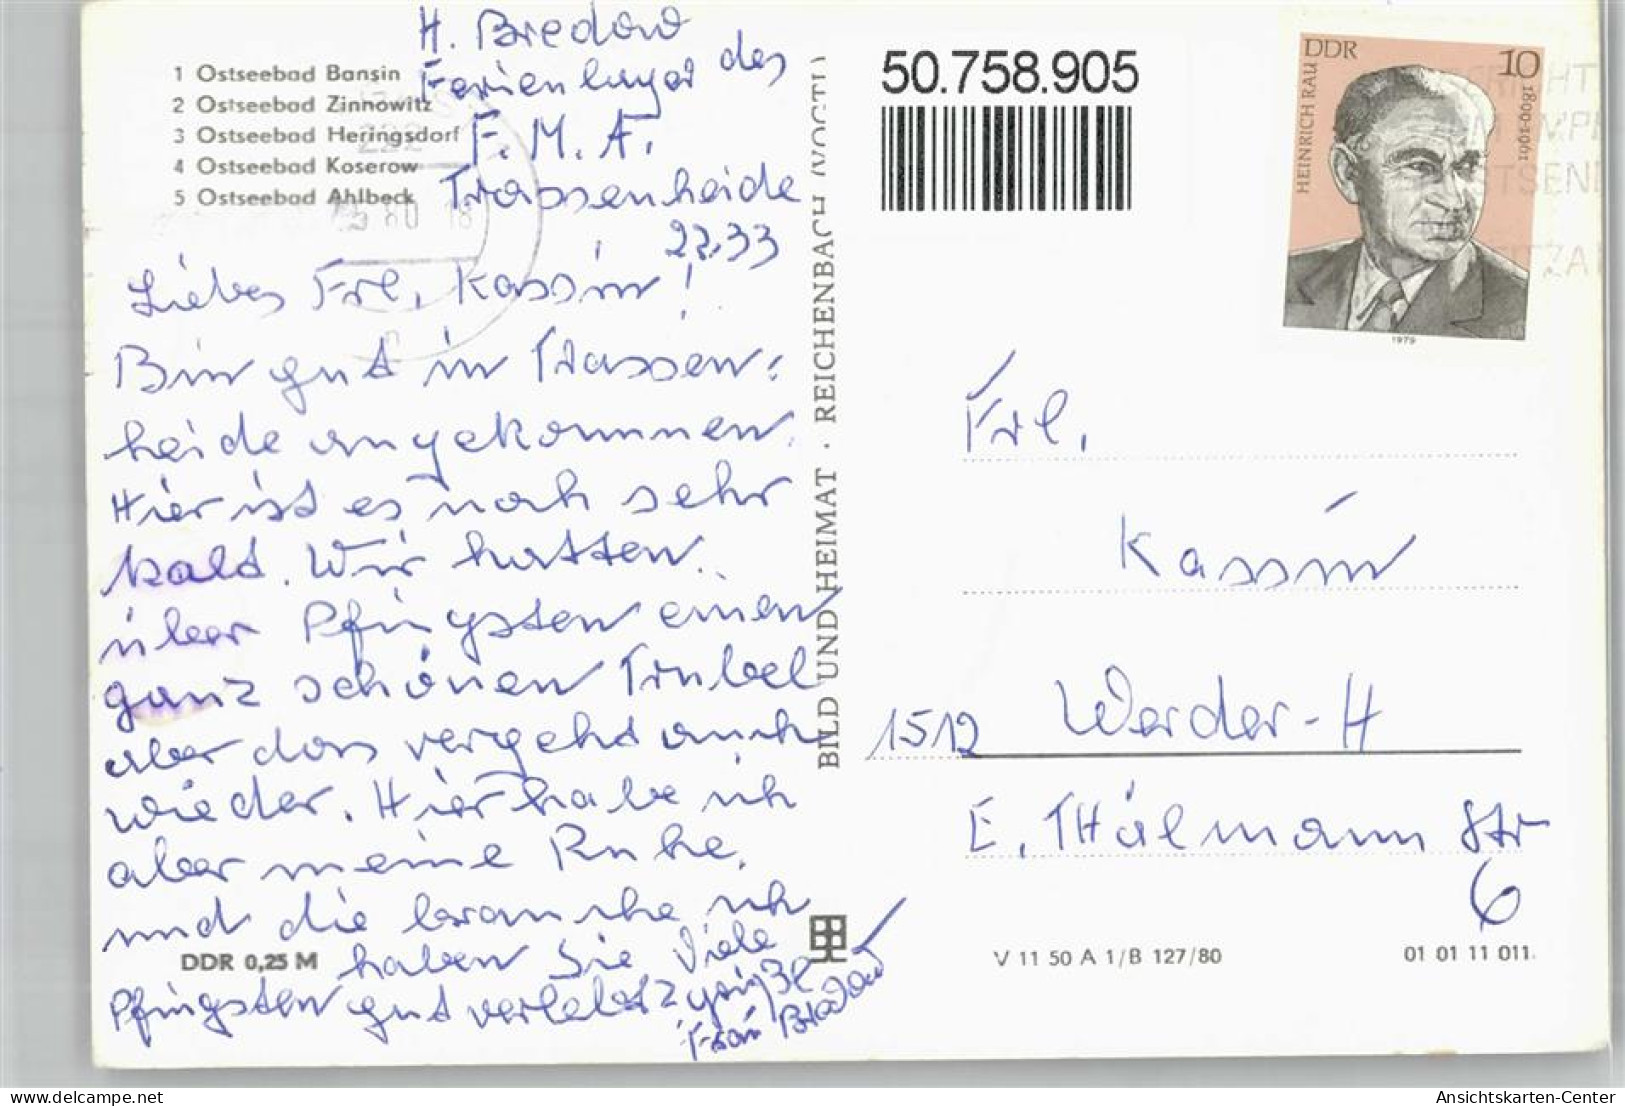 H. Bredow
Ferienlager des
F. M. A.
Trassenheide
2233
1 Ostseebad Bansin
2 Ostseebad Zinnowitz
3 Ostseebad Heringsdorf
4 Ostseebad Koserow
5 Ostseebad Ahlbeck
Liebes Frl. Kassin!
Bin gut in Trassen-
heide angekommen.
Hier ist es noch sehr
kald. Wir hatten
über Pfingsten einen
ganz schönen Trubel
aber das vergehd auch
wieder. Hier habe ich
aber meine Ruhe.
und die brauche ich
haben Sie Viele
Pfingsten gud verlebt
Frau Bredow
DDR 0,25 M
BILD UND HEIMAT · REICHENBACH (VOGTL)
50.758.905
DDR 10
HEINRICH RAU 1899-1961
1979
Frl.
Kassin
1512 Werder-H
E. THälmann Str
6
V 11 50 A 1/B 127/80
01 01 11 011
Ansichtskarten-Center